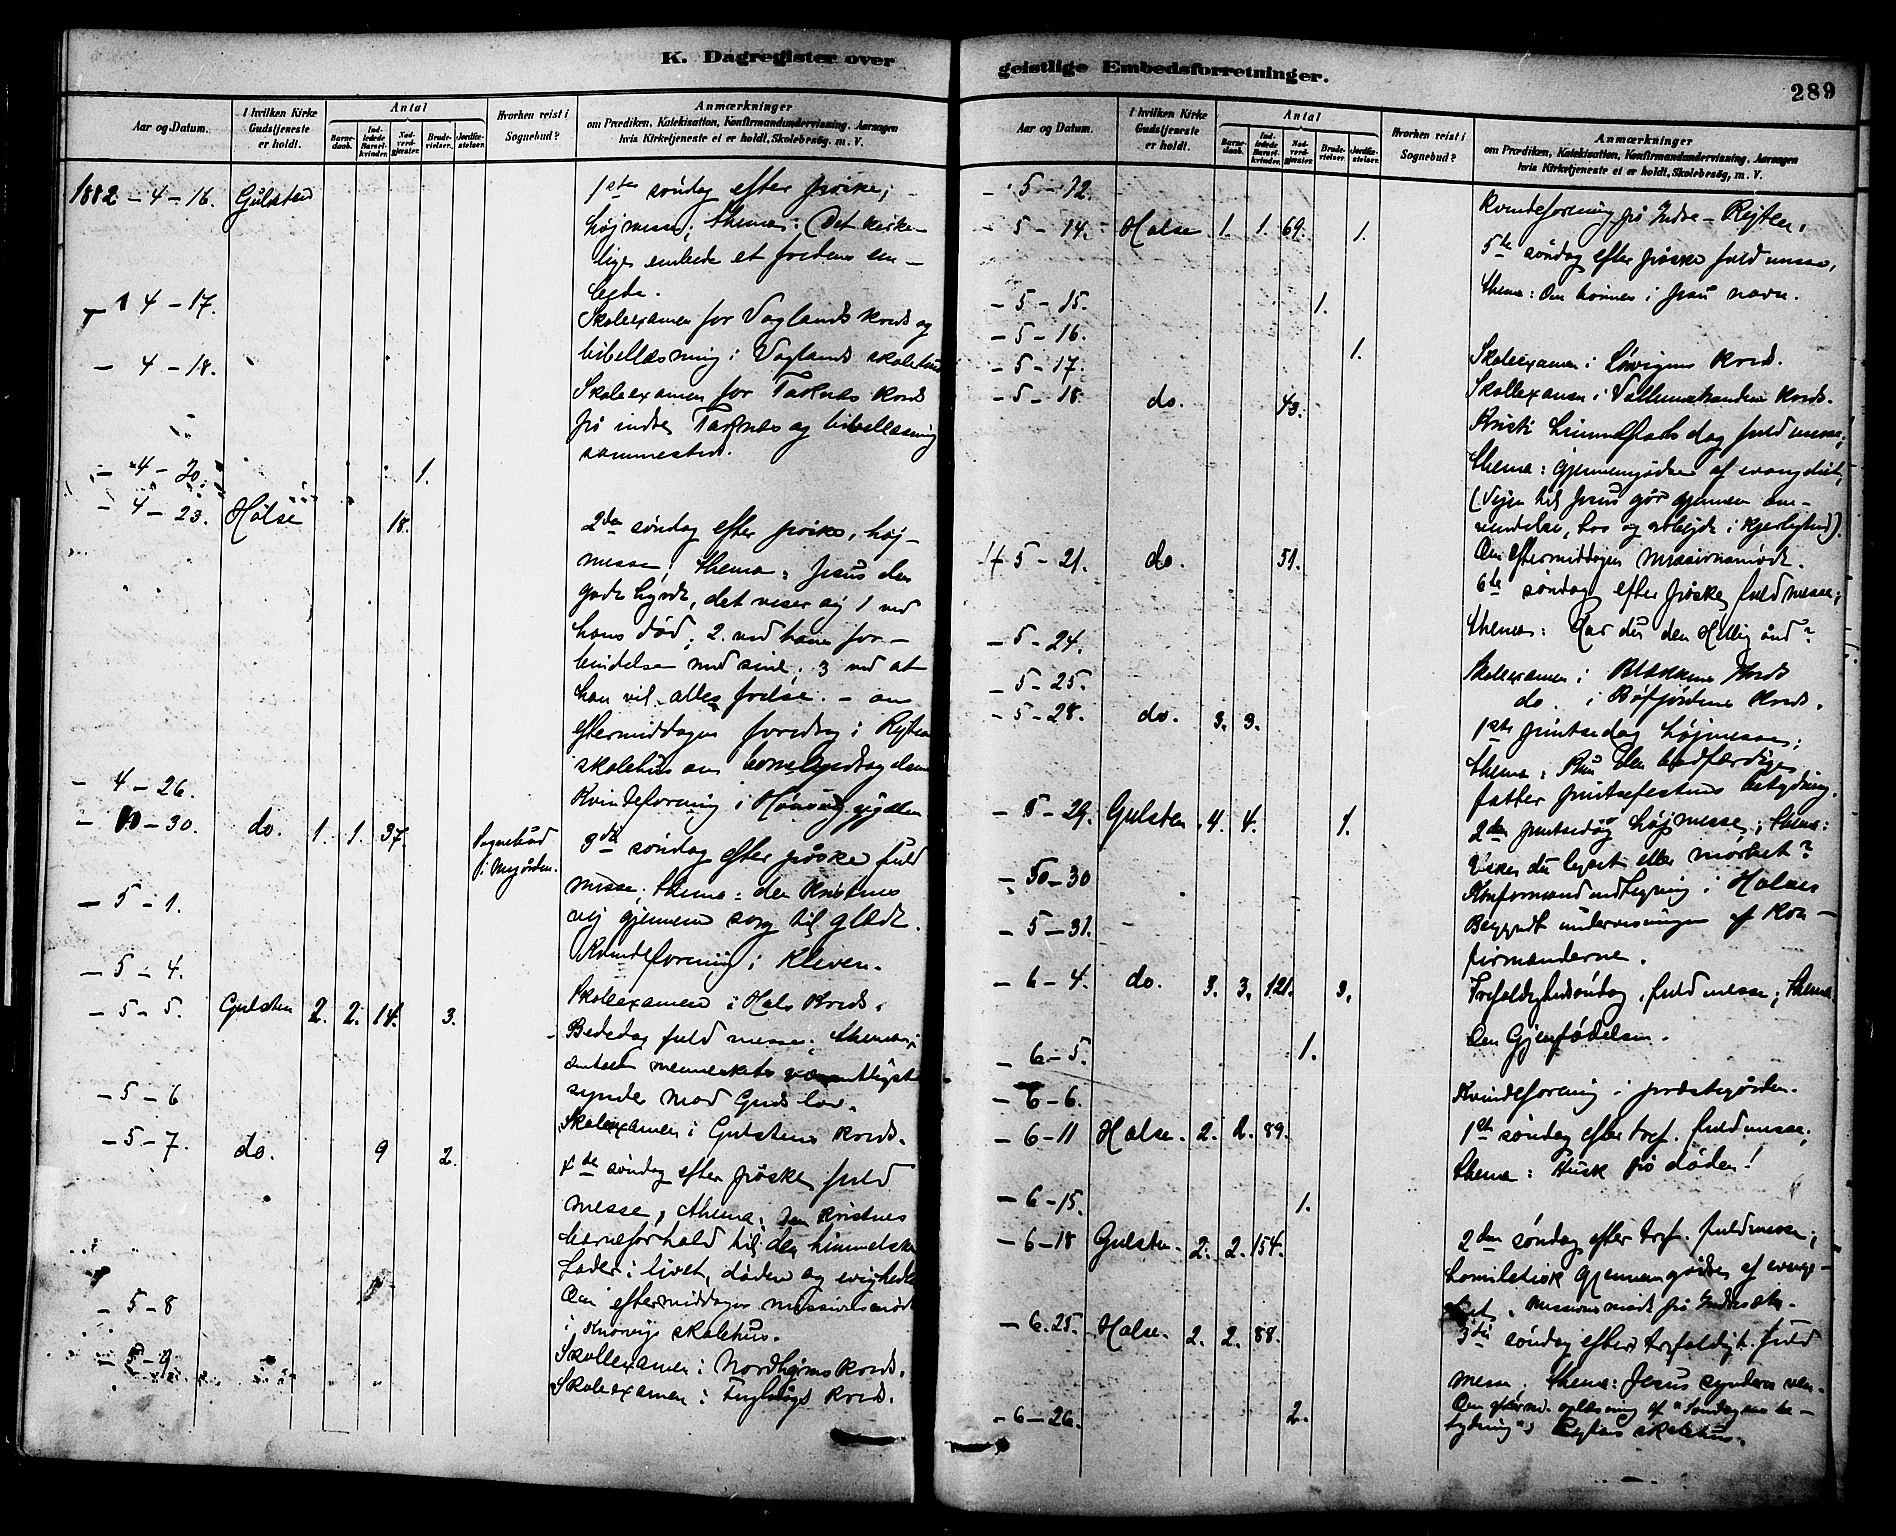 K. Dagregister over
Aar og Datum.
I hvilken Kirke Gudstjeneste er holdt.
Antal
Barnedaab.
Indledede Barselkvinder.
Nadverdgjester.
Brudevielser.
Jordfæstelser.
Hvorhen reist i Sognebud?
Anmærkninger
om Prædiken, Katekisation, Konfirmandundervisning, Aarsagen
hvis Kirketjeneste ei er holdt, Skolebesøg, m. V.
1882 - 4 - 16. Gulsten 1ste søndag efter påske,
højmesse; thema: Det kirke-
lige embede et fredens em-
bede.
4 - 17. Skoleexamen for Vaglands kreds og
bibellæsning i Vaglands skolehus
- 4 - 18. Skoleexamen for Taknes kreds
på indre Taknes og bibellæsning
sammesteds.
- 4 - 20. 1.
- 4 - 23. Halse 18. 2den søndag efter påske, høj-
messe; thema: Jesus den
gode hyrde, det viser sig 1 ved
hans død; 2. ved hans for-
bindelse med sine; 3 ved at
han vil alles frelse. - om
eftermiddagen foredrag i
skolehus om
- 4 - 26. Kvindeforening i
- 30. do. 1. 1. 37. Sognebud i 3die søndag efter påske fuld
messe; thema: den kristnes
vej gjennem sorg til glæde.
- 5 - 1. Kvindeforening i Kleven.
- 5 - 4. Skoleexamen i Hals kreds.
- 5 - 5. Gulsten 2. 2. 14. 3. Bededag fuld messe; thema:
menneskets
synder mod Guds lov.
- 5 - 6 Skoleexamen i Gulstens kreds.
- 5 - 7. do. 9 2. 4de søndag efter påske, fuld
messe, thema: Den kristnes
barneforhold til den himmelske
fader i livet, døden og evigheden
Om eftermiddagen missionsmøde
i skolehus.
- 5 - 8 Skoleexamen i kreds.
- 5 - 9 Skoleexamen i kreds.
geistlige Embedsforretninger.
289
Aar og Datum.
I hvilken Kirke Gudstjeneste er holdt.
Antal
Barnedaab.
Indledede Barselkvinder.
Nadverdgjester.
Brudevielser.
Jordfæstelser.
Hvorhen reist i Sognebud?
Anmærkninger
om Prædiken, Katekisation, Konfirmandundervisning, Aarsagen
hvis Kirketjeneste ei er holdt, Skolebesøg, m. V.
- 5 - 12. Kvindeforening på Indre-Rejten.
- 5 - 14. Halse 1. 1. 69. 1. 5te søndag efter påske fuld messe,
thema: Om bønnen i Jesu navn.
- 5 - 15. 1.
- 5 - 16. 1. Skoleexamen i kreds.
- 5 - 17. Skoleexamen i kreds.
- 5 - 18 do. 43. Kristi himmelfarts dag fuld messe;
thema: gjennemgåelse af evangeliet;
(Vejen til Jesus går gjennem om-
vendelse, tro og arbejde i kjerlighed).
Om eftermiddagen missionsmøde.
5 - 21. do. 51. 6te søndag efter påske, fuld messe;
thema: Har du den Hellig ånd?
- 5 - 24. Skoleexamen i kreds
- 5 - 25. do. i Bøfjordens kreds.
- 5 - 28. do. 3. 3. 1ste pintsedag højmesse;
thema: Kun den bodfærdige
fatter pintsefestens betydning.
- 5 - 29. Gulsten 4. 4. 1. 2den pintsedag højmesse; thema:
Elsker du lyset eller mørket?
- 5 - 30 Konfirmand i Halse
- 5 - 31. Begyndt undervisningen af kon-
firmanderne.
- 6 - 4. do. 3. 3. 121. 3. Trefoldighedssøndag, fuld messe; thema:
Om Gjenfødelsen.
- 6 - 5. 1.
- 6 - 6. Kvindeforening i præstegården.
- 6 - 11 Halse. 2. 2. 89. 1ste søndag efter tref. fuld messe;
thema: Husk på døden!
- 6 - 15. 1.
- 6 - 18 Gulsten. 2. 2. 154. 2den søndag efter tref. fuld messe;
homiletisk gjennemgåelse af evange-
liet. Missionsmøde på
- 6. 25. Halse. 2. 2. 88. 3die søndag efter trefoldigh. fuld
messe. thema: Jesus synderes ven.
Om efterm. oplæsning af "Søndagens be-
tydning" i Rejtens skolehus.
- 6 - 26. 2.